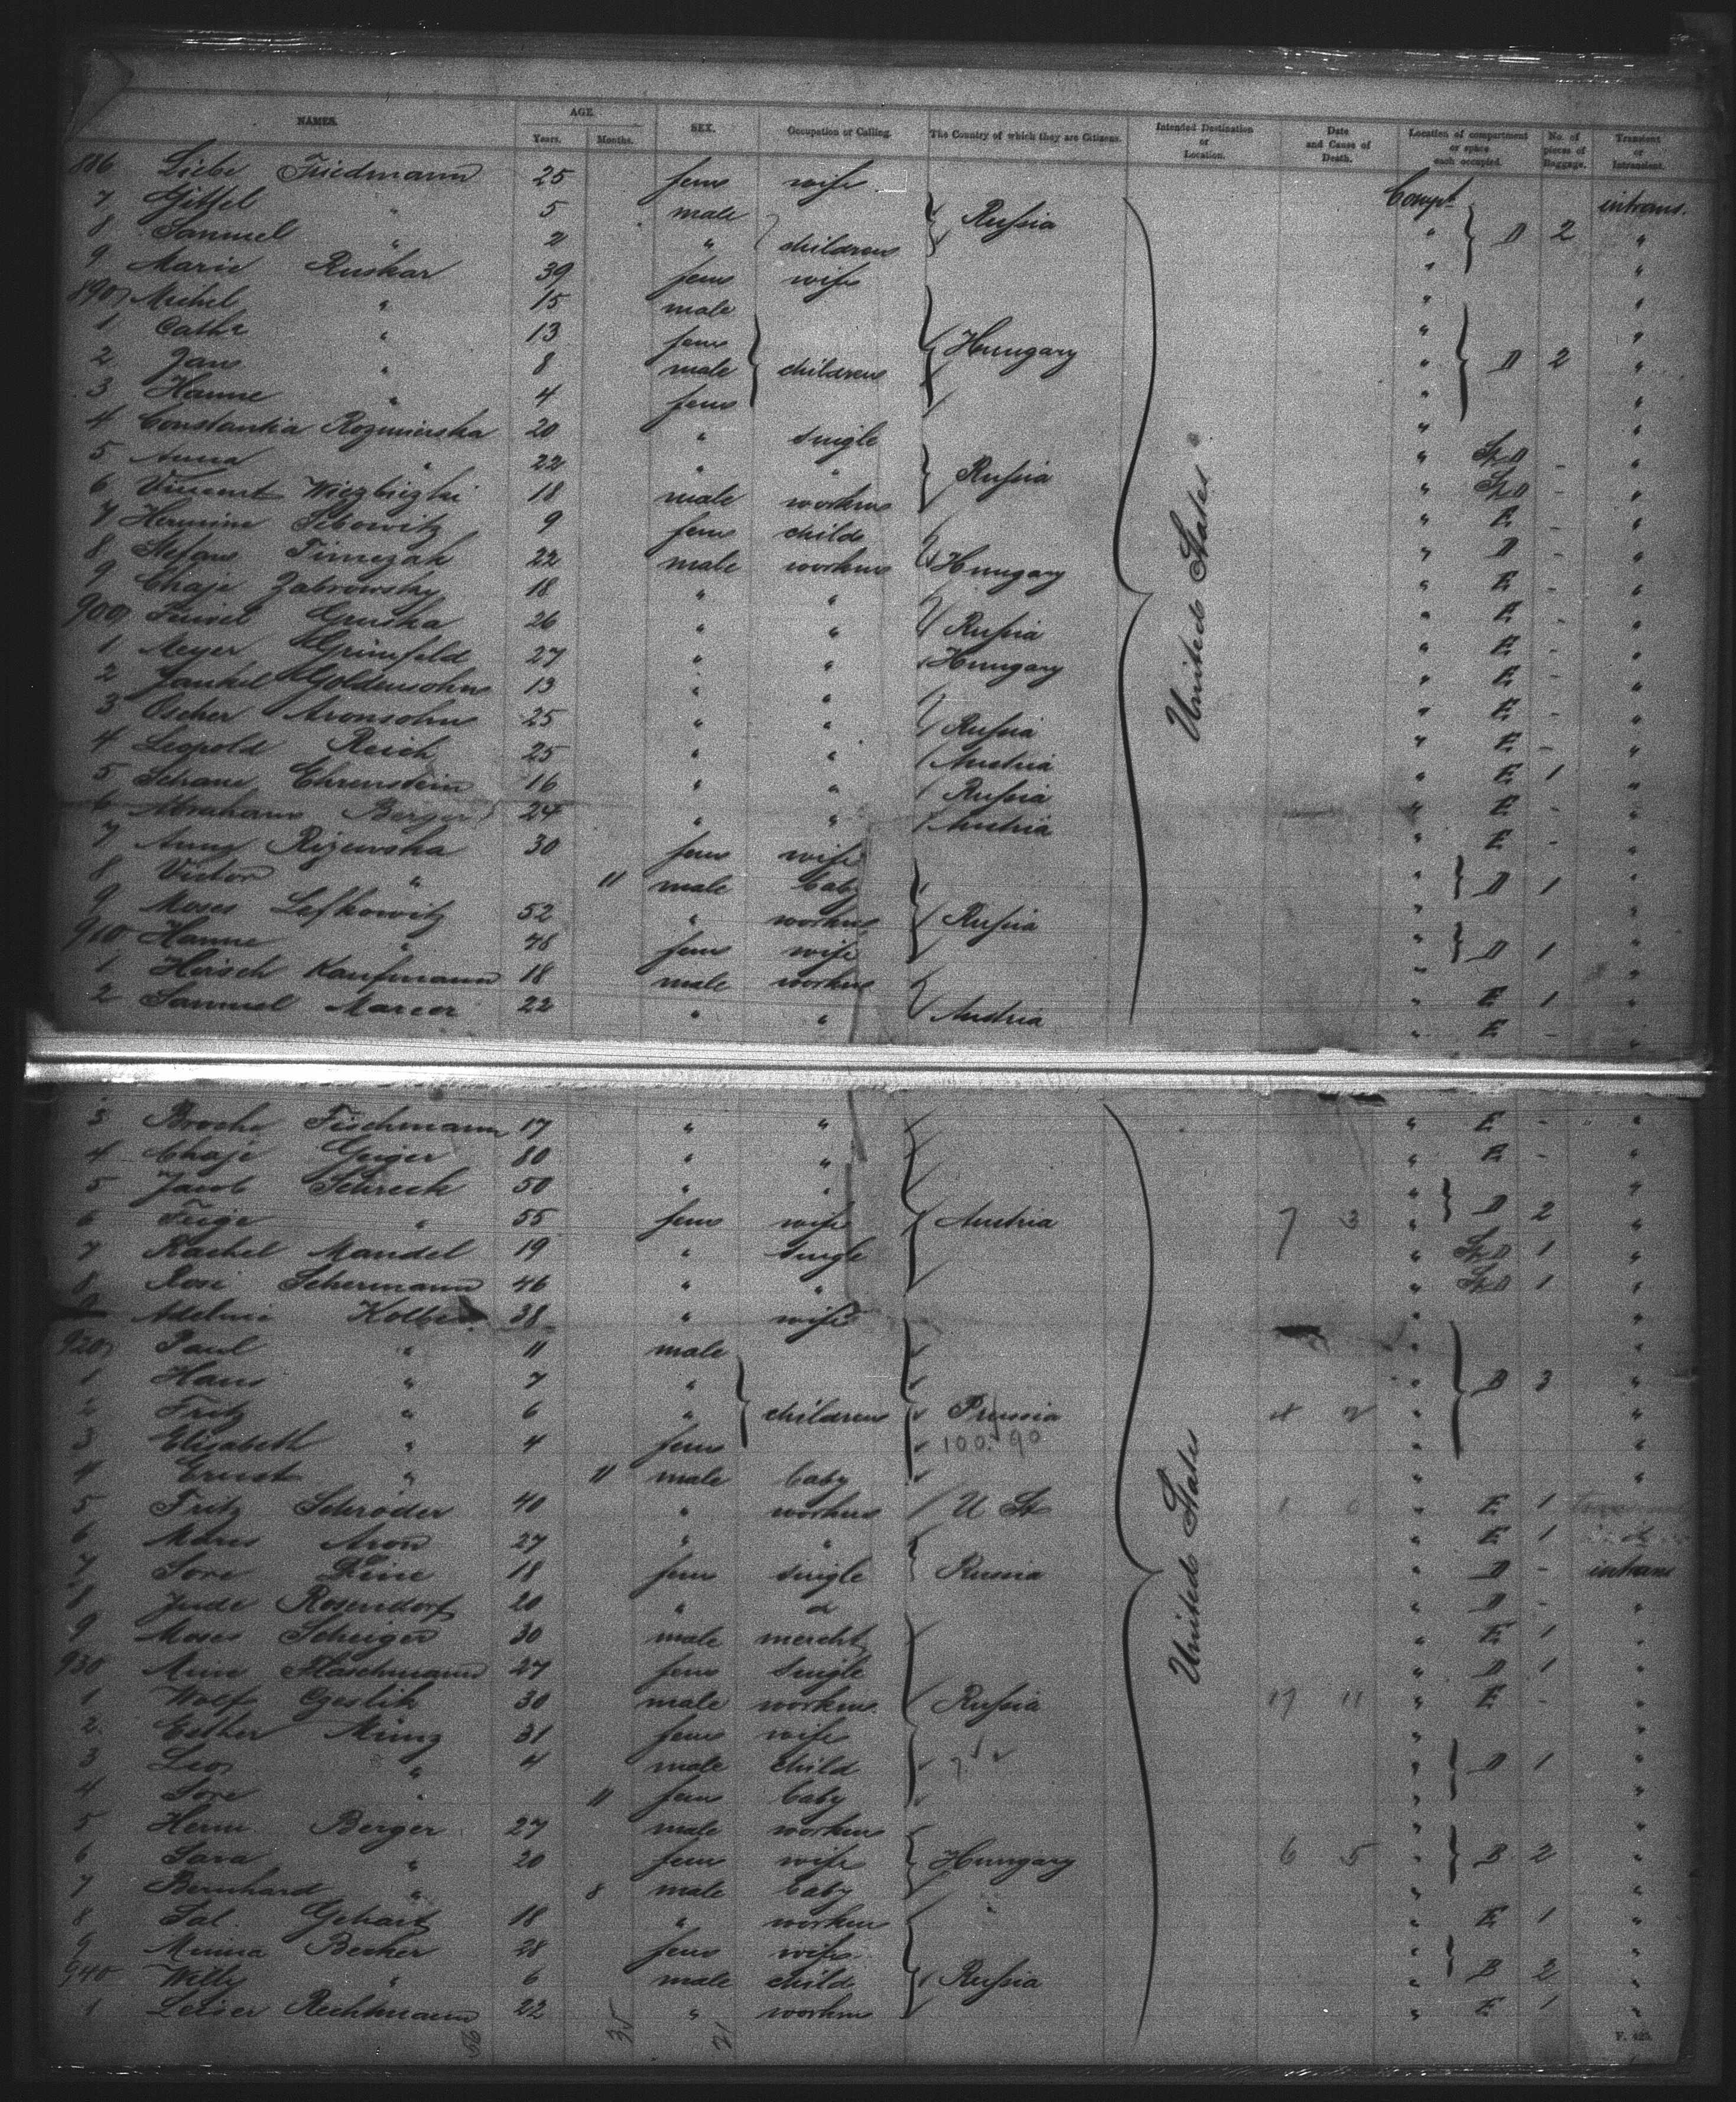 NAMES. AGE. SEX. Occupation or Calling. The Country of which they are Citizens. Intended Destination or Location. Date and Cause of Death. Location of compartment or space each occupied. No. of pieces of Baggage. Transient or Intransient.
Years. Months.
886 Liebe Friedmann 25 fem wife Compt. intrans.
7 Gittel " 5 male Russia " D 2 "
8 Samuel " 2 " children " "
9 Marie Ruskar 39 fem wife " "
890 Michel " 15 male " "
1 Cathe " 13 fem Hungary " "
2 Jans " 8 male children " D 2 "
3 Hanne " 4 fem " "
4 Constantia Rozmierska 20 " single " Sp D - "
5 Anna " 22 " " Russia " Sp D - "
6 Vincent 18 male workm " E - "
7 Hermine Lebowitz 9 fem child " D - "
8 Stefan Timezak 22 male workm Hungary " E - "
9 Chaje Zabrowsky 18 " " " E - "
900 Feiwel Gruska 26 " " Russia " E - "
1 Meyer Grünfeld 27 " " Hungary " E - "
2 Jankel Goldensohn 13 " " " E - "
3 Oscher Aronsohn 25 " " Russia " E - "
4 Leopold Reich 25 " " Austria " E 1 "
5 Schane Ehrenstein 16 " " Russia " E - "
6 Abraham Berger 24 " " Austria " E - "
7 Anny Rizewska 30 fem wife " D 1 "
8 Victor " 11 male baby " "
9 Moses Lefkowitz 52 " workm Russia " D 1 "
910 Hanne " 48 fem wife " "
1 Hirsch Kaufmann 18 male workm " E 1 "
2 Samuel Marcer 22 " " Austria " E - "
United States
3 Broche Fischmann 17 " " " E - "
4 Chaje Geiger 80 " " " E - "
5 Jacob Schreck 50 " " " D 2 "
6 Feige " 55 fem wife Austria 7 3 " "
7 Rachel Mandel 19 " single " Sp D 1 "
8 Rosi Schermann 46 " " " Sp D 1 "
9 Adelmi Kolbe 38 " wife " "
920 Paul " 11 male " "
1 Hans " 7 " " B 3 "
2 Fritz " 6 " children Prussia 4 2 " "
3 Elisabeth " 4 fem 100.90 " "
4 Ernst " 11 male baby " "
5 Fritz Schröder 40 " workm U St 1 6 " E 1
6 Mores Aron 27 " " " E 1 d
7 Sore Leine 18 fem single Russia " D - intrans
8 Jude Rosendorf 20 " d " D - "
9 Moses Scheiger 30 male mercht " E 1 "
930 Mine Flaschmann 27 fem single " D 1 "
1 Wolf Geslik 30 male workm Russia 17 11 " E - "
2 Esther Münz 31 fem wife " "
3 Leo " 4 male child " D 1 "
4 Sore " 11 fem baby " "
5 Herm. Berger 27 male workm " "
6 Sara " 20 fem wife Hungary 6 5 " B 2 "
7 Bernhard " 8 male baby " "
8 Sal. Gehart 18 " workm " E 1 "
9 Minna Becker 28 fem wife " "
940 Willy " 6 male child Russia " B 2 "
1 Leiser Rechtmann 22 " workm " E 1 "
United States
56 35 21